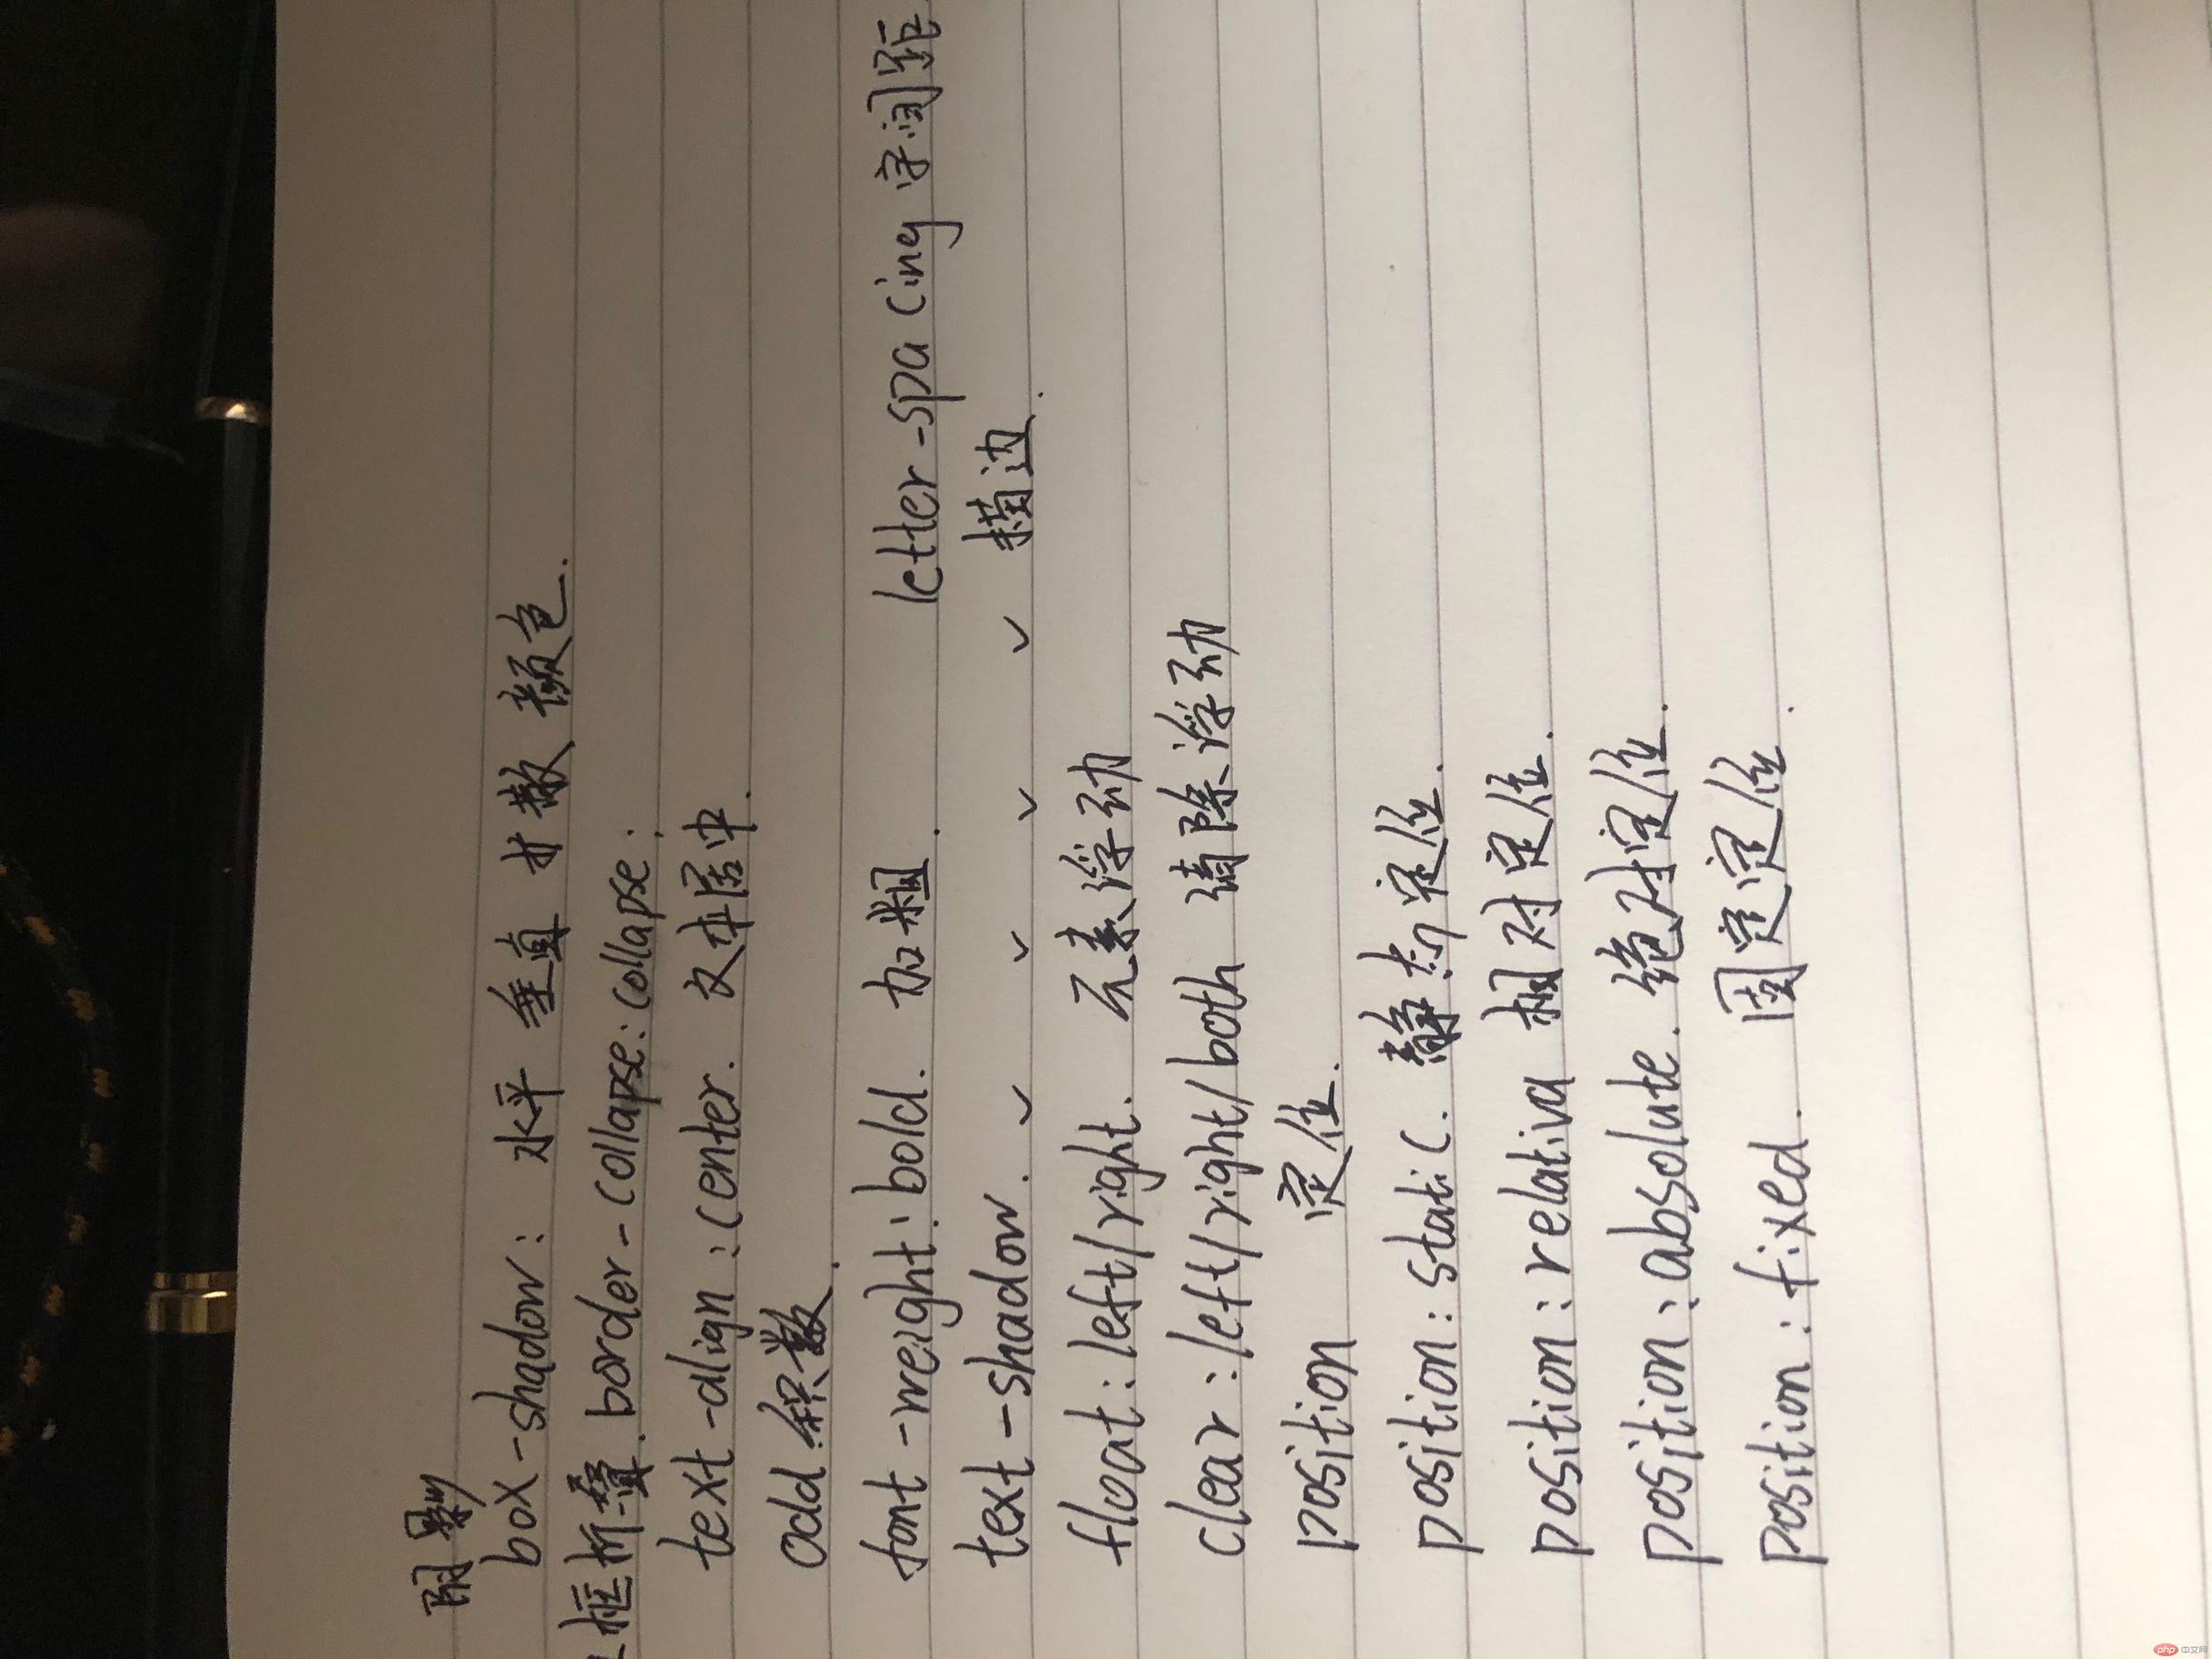 阴影
box-shadow: 水平 垂直 扩散 颜色.
框折叠.border-collapse:collapse;
text-align:center. 文本居中.
odd 奇数.
font-weight:bold. 加粗. letter-spacing 字间距
text-shadow. ✓ ✓ ✓ ✓ 描边.
float:left/right. 元素浮动
clear:left/right/both 清除浮动
position 定位.
position:static. 静态定位.
position:relativa 相对定位.
position:absolute. 绝对定位.
position:fixed. 固定定位.
php 中文网